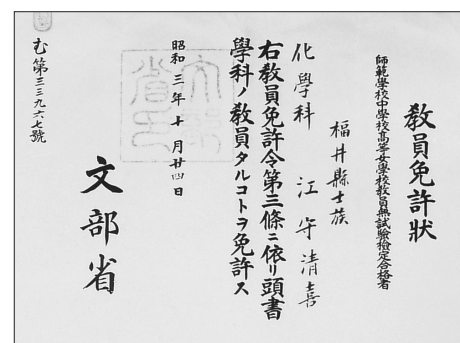 教員免許狀
師範學校中學校高等女學校教員無試驗檢定合格者
福井縣士族
化學科　江守清喜
右教員免許令第三條ニ依リ頭書
學科ノ教員タルコトヲ免許ス
昭和三年十月廿四日
文部省
む第三三九六七號